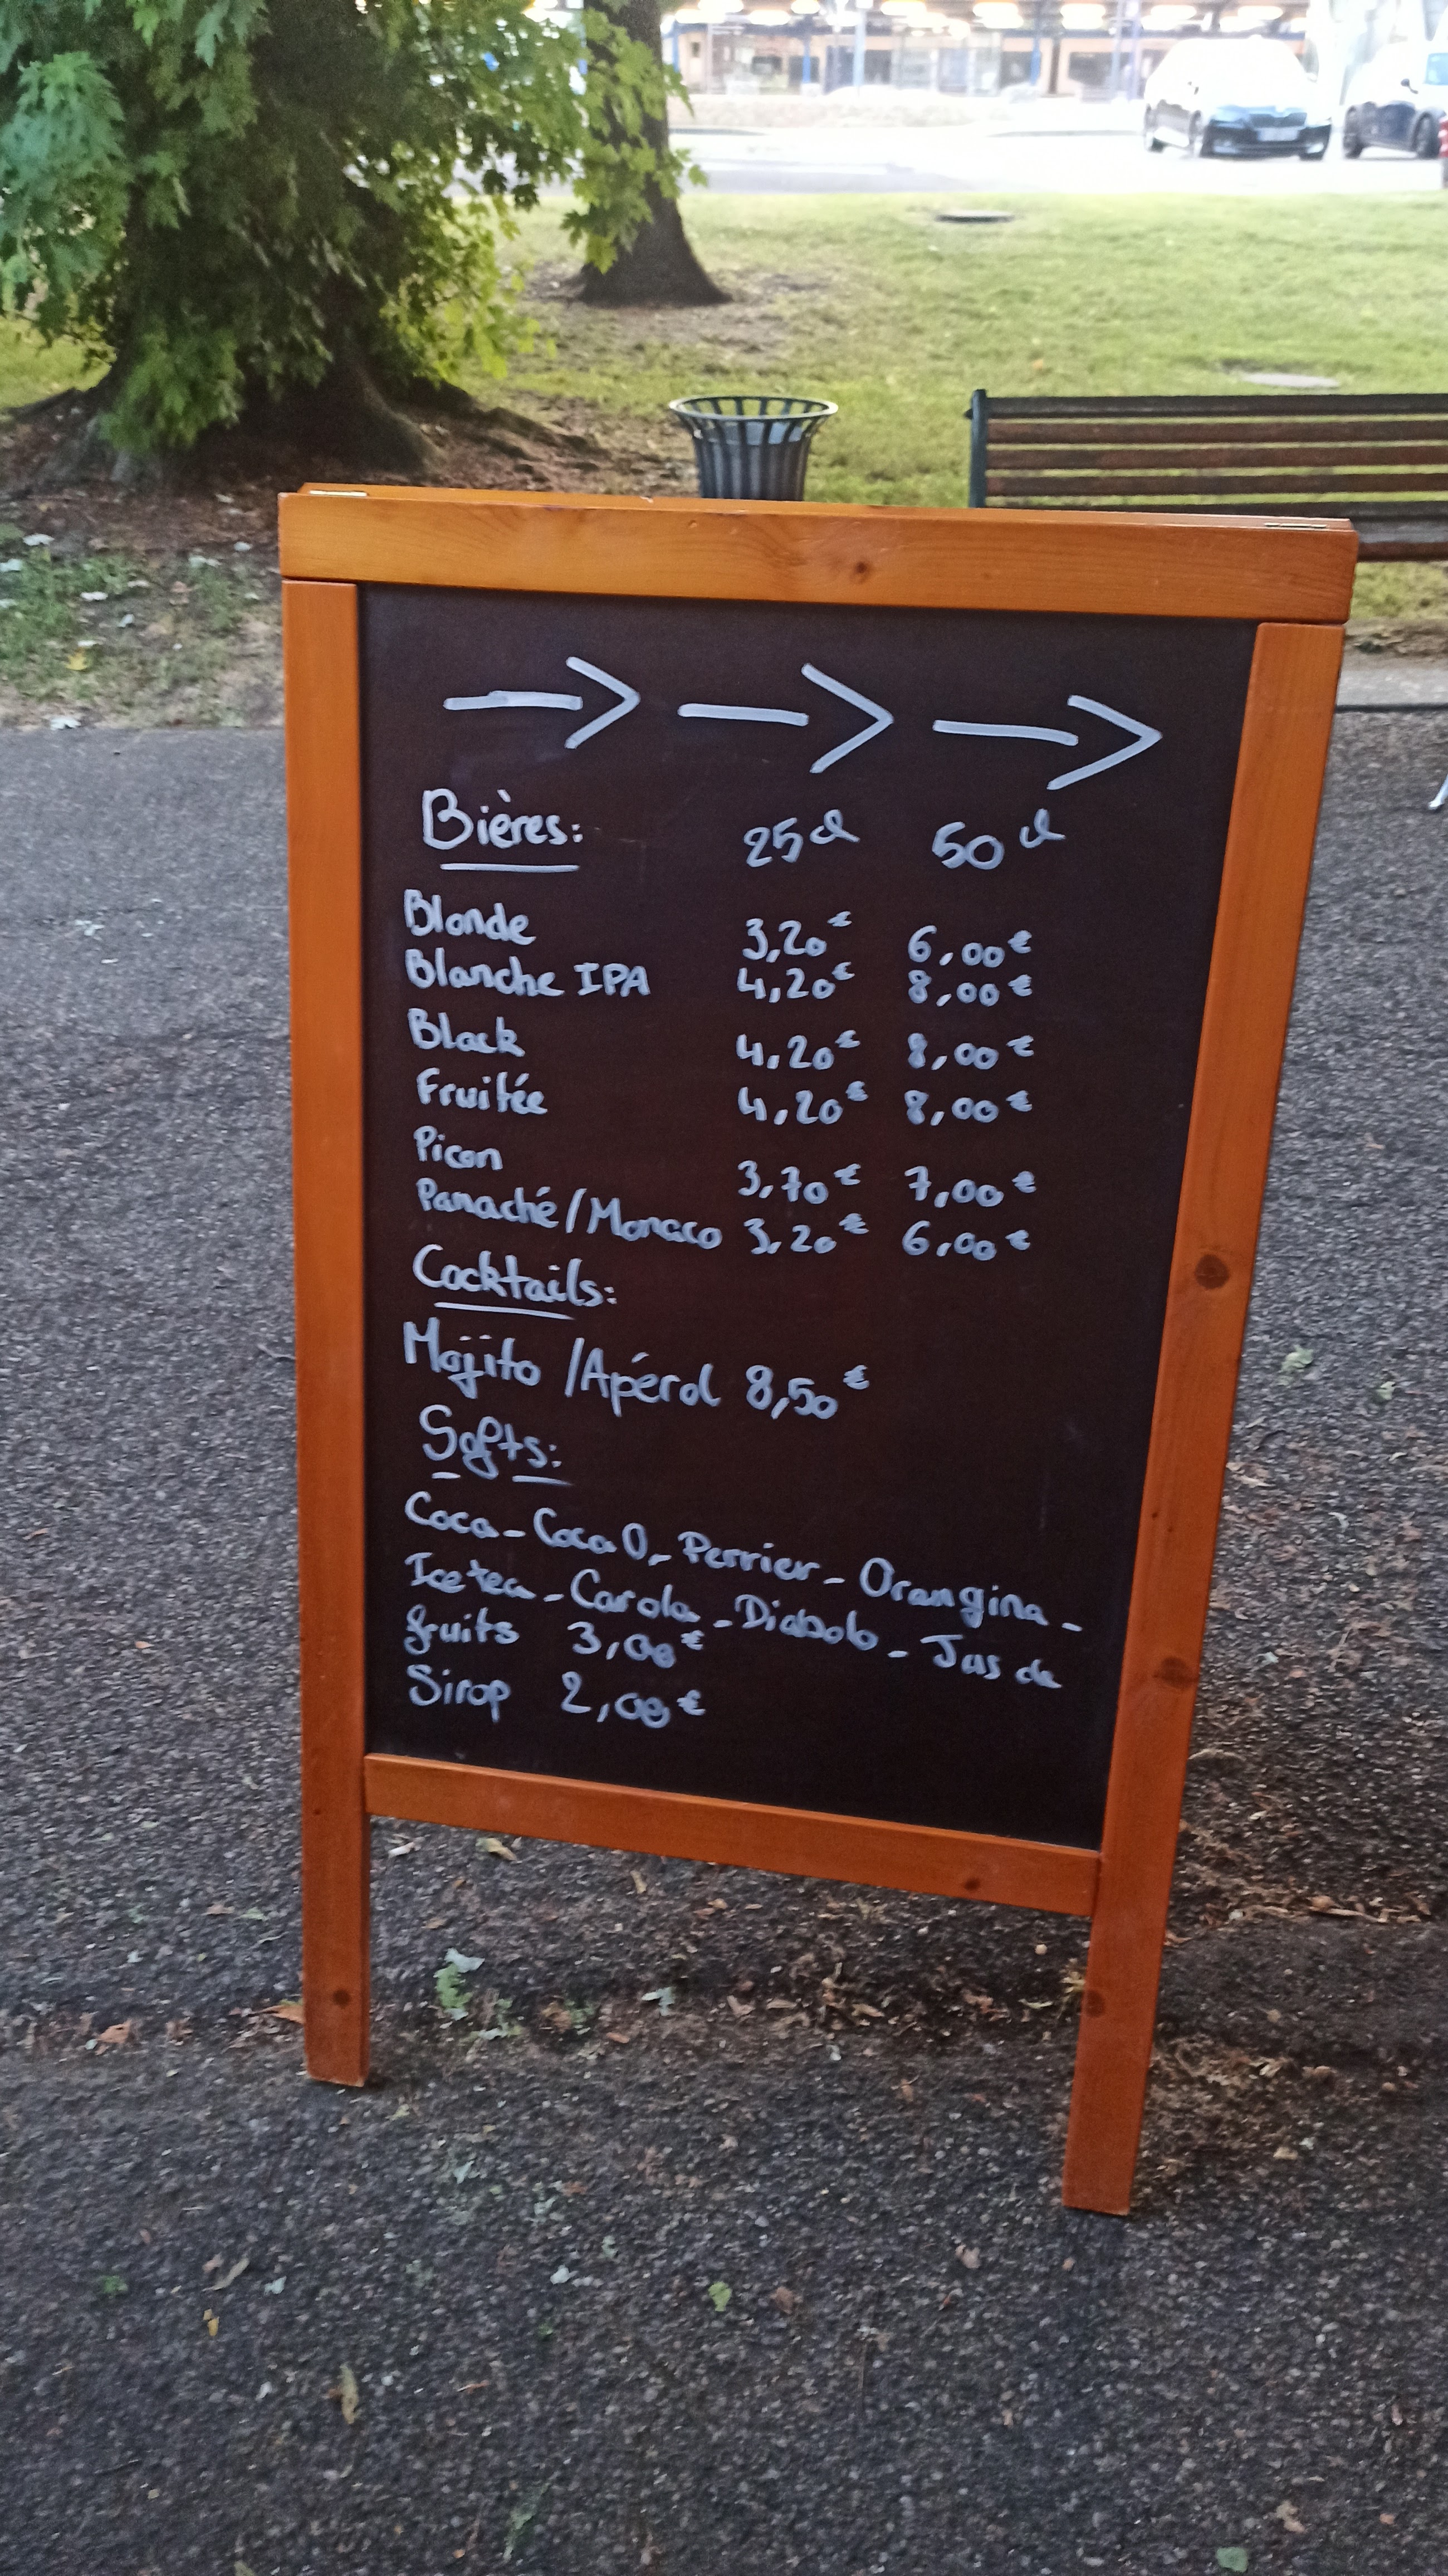 → → →
Bières: 25cl 50cl
Blonde 3,20€ 6,00€
Blanche IPA 4,20€ 8,00€
Black 4,20€ 8,00€
Fruitée 4,20€ 8,00€
Picon 3,70€ 7,00€
Panaché/Monaco 3,20€ 6,00€
Cocktails:
Mojito /Apérol 8,50€
Softs:
Coca - Coca 0 - Perrier - Orangina -
Ice tea - Carola - Diabolo - Jus de
fruits 3,00€
Sirop 2,00€